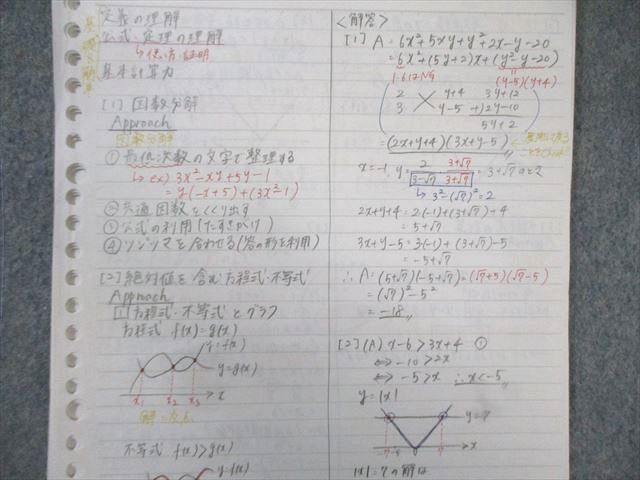 定義の理解
公式・定理の理解
↳使い方・証明
基本計算力
[1] 因数分解
Approach
因数分解
① 最低次数の文字で整理する
↳ ex) 3x²-xy+5y-1
= y(-x+5)+(3x²-1)
② 共通因数をくくり出す
③ 公式の利用(たすきがけ)
④ ツジツマを合わせる(答の形を利用)
[2] 絶対値を含む方程式・不等式
Approach
1 方程式・不等式とグラフ
方程式 f(x)=g(x)
y=f(x)
y=g(x)
x₁ x₂ x₃ x
不等式 f(x)>g(x)
y=f(x)
<解答>
[1] A=6x²+5xy+y²+2x-y-20
=6x²+(5y+2)x+(y²-y-20)
(y-5)(y+4)
2 y+4 3y+12
3 y-5 +)2y-10
5y+2
=(2x+y+4)(3x+y-5)
x=-1, y=2/(3-√7) (3+√7)/(3+√7)=3+√7のとき
↳ 3²-(√7)²=2
2x+y+4=2·(-1)+(3+√7)+4
=5+√7
3x+y-5=3·(-1)+(3+√7)-5
=-5+√7
∴ A=(5+√7)(-5+√7)=(√7+5)(√7-5)
=(√7)²-5²
=-18
[2] (A) x-6>3x+4 ①
⇔ -10>2x
⇔ -5>x ∴x<-5
y=|x|
y=7
-7 0 7 x
|x|=7の解は